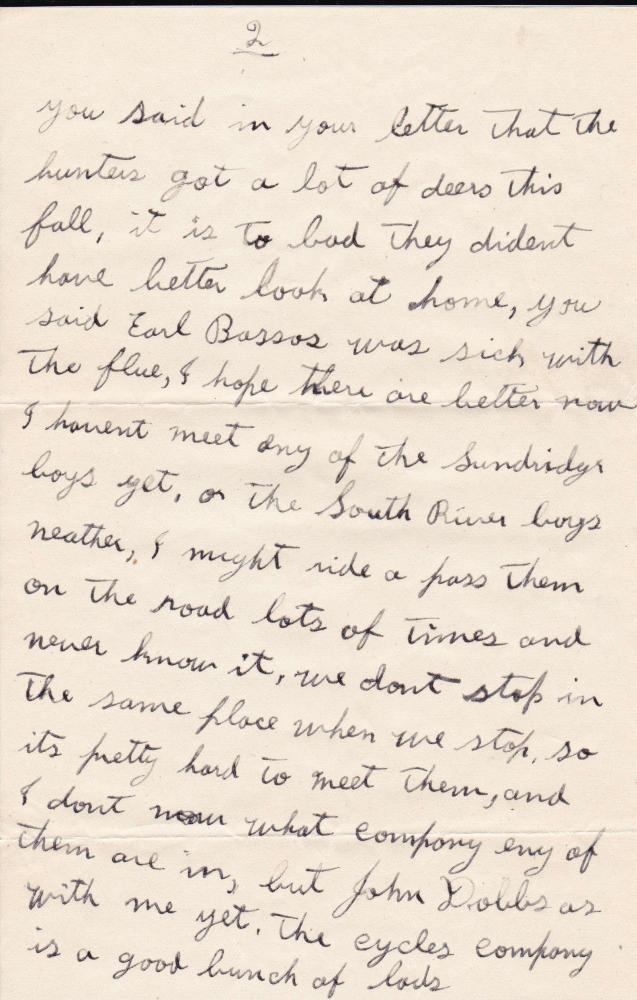 2
you said in your letter that the
hunters got a lot of deers this
fall, it is to bad they dident
have better look at home, you
said Earl Bassos was sick with
the flue, I hope there are better now
I havent meet any of the Sundridge
boys yet, or the South River boys
neather, I might ride a pass them
on the road lots of times and
never know it, we dont stop in
the same place when we stop, so
its pretty hard to meet them, and
I dont now what company eny of
them are in, but John Dobbs as
with me yet. The cycles company
is a good bunch of lads